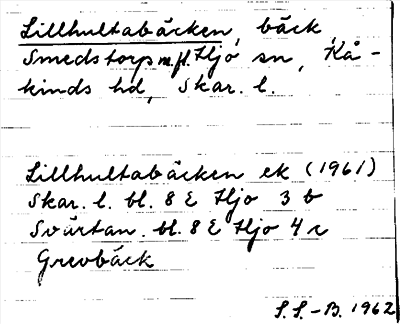 Lillhultabäcken, bäck,
Smedstorps m.fl. Hjo sn, Kå-
kinds hd, Skar. l.
Lillhultabäcken ek (1961)
Skar. l. bl. 8 E Hjo 3 b
Svärtan. bl. 8 E Hjo 4 c
Grevbäck
S.S.-B. 1962